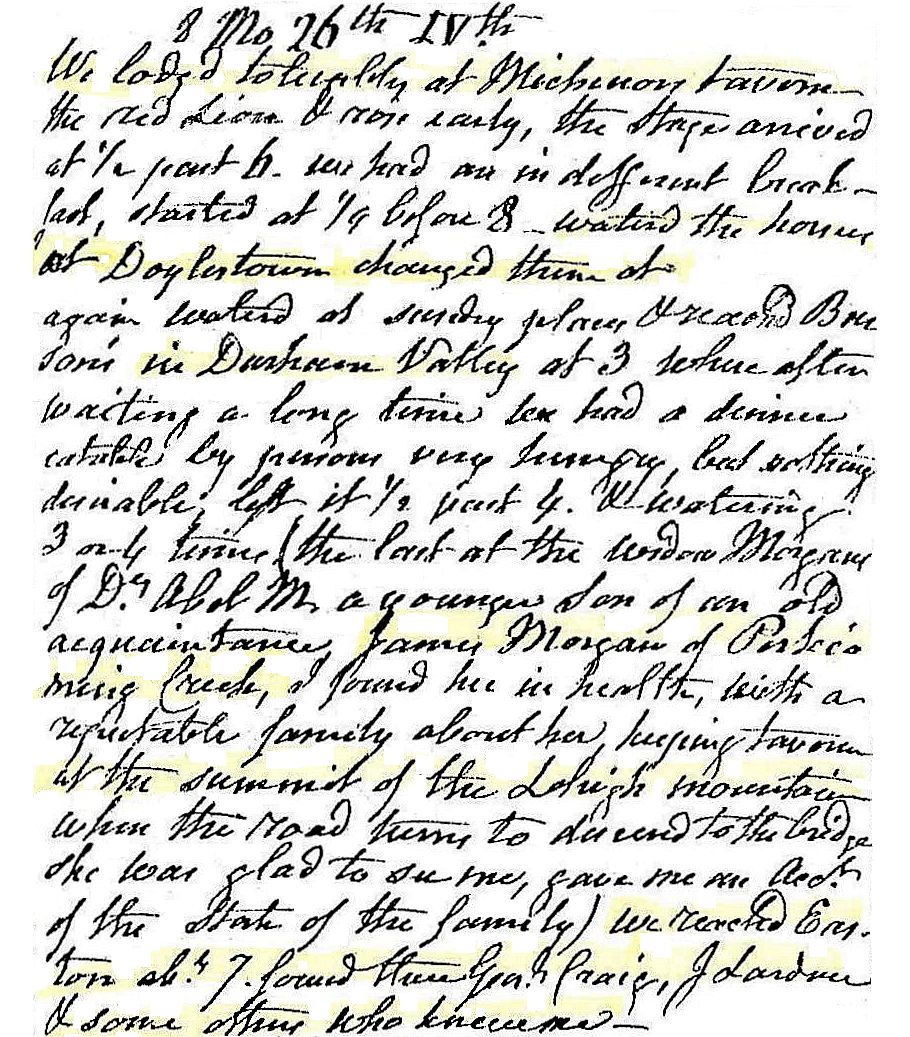 8 Mo 26th IVth
We lodged tolerably at Micheners tavern
the red Lion & rose early, the stage arrived
at 1/2 past 6. we had an indifferent break-
fast, started at 1/4 before 8 - waterd the horses
at Doylestown changed them at
again waterd at sundry places & reachd
in Durham Valley at 3 where after
waiting a long time we had a dinner
eatable by persons very hungry, but nothing
desirable, left it 1/2 past 4. & watering
3 or 4 times (the last at the widow Morgans
of Dr. Abel M. a younger son of an old
acquaintance, James Morgan of
Creek, I found her in health, with a
reputable family about her, keeping tavern
at the summit of the Lehigh mountain
where the road turns to descend to the bridge
she was glad to see me, gave me an acct.
of the State of the family) we reached Eas-
ton abt. 7. found there Craig, J Lardner
& some others who knew me -